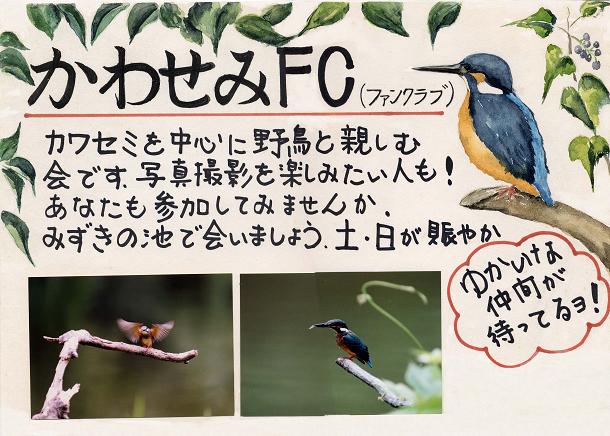 かわせみFC(ファンクラブ)
カワセミを中心に野鳥と親しむ
会です.写真撮影を楽しみたい人も!
あなたも参加してみませんか.
みずきの池で会いましょう.土・日が賑やか
ゆかいな
仲間が
待ってるョ!